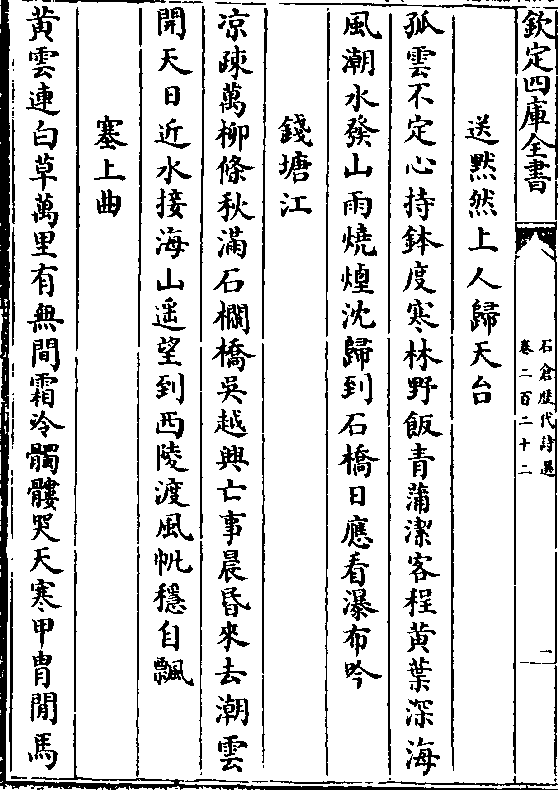 欽定四庫全書
石倉歷代詩選
卷二百二十二
二
送默然上人歸天台
孤雲不定心持鉢度寒林野飯青蒲潔客程黃葉深海
風潮水發山雨燒煙沈歸到石橋日應看瀑布吟
錢塘江
凉疎萬柳條秋滿石欄橋吳越興亡事晨昏來去潮雲
開天日近水接海山遥望到西陵渡風帆穩自飄
塞上曲
黃雲連白草萬里有無間霜冷髑髏哭天寒甲胄閒馬